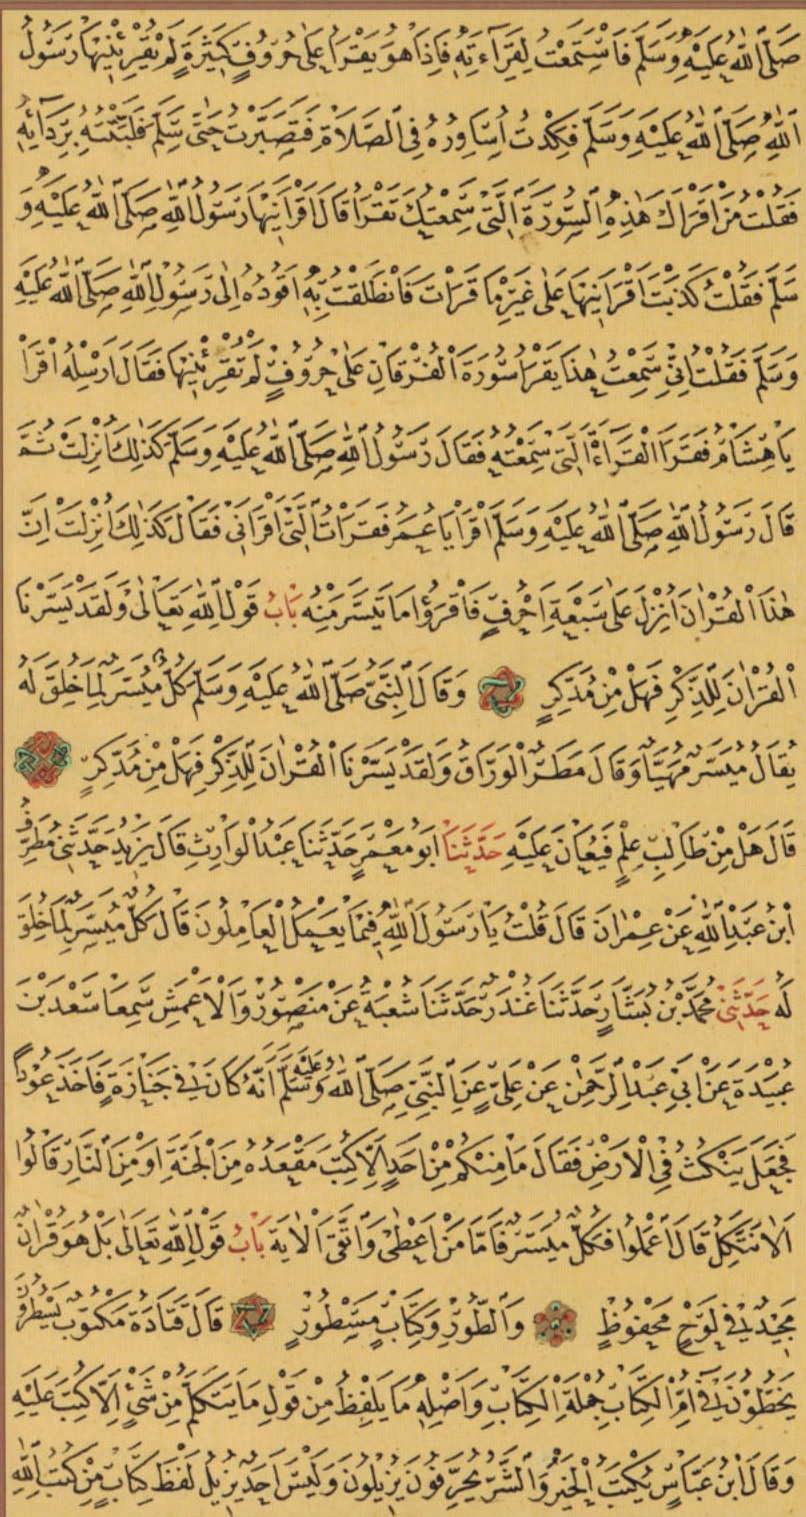 صَلَّى اللّٰهُ عَلَيْهِ وَسَلَّمَ فَاسْتَمَعْتُ لِقِرَاءَتِهِ فَاِذَا هُوَ يَقْرَأُ عَلٰى حُرُوفٍ كَثِيرَةٍ لَمْ يُقْرِئْنِيهَا رَسُولُ
اللّٰهِ صَلَّى اللّٰهُ عَلَيْهِ وَسَلَّمَ فَكِدْتُ اُسَاوِرُهُ فِى الصَّلَاةِ فَتَصَبَّرْتُ حَتّٰى سَلَّمَ فَلَبَّبْتُهُ بِرِدَائِهِ
فَقُلْتُ مَنْ اَقْرَاَكَ هٰذِهِ السُّورَةَ الَّتِى سَمِعْتُكَ تَقْرَأُ قَالَ اَقْرَاَنِيهَا رَسُولُ اللّٰهِ صَلَّى اللّٰهُ عَلَيْهِ وَ
سَلَّمَ فَقُلْتُ كَذَبْتَ اَقْرَاَنِيهَا عَلٰى غَيْرِ مَا قَرَأْتَ فَانْطَلَقْتُ بِهِ اَقُودُهُ اِلٰى رَسُولِ اللّٰهِ صَلَّى اللّٰهُ عَلَيْهِ
وَسَلَّمَ فَقُلْتُ اِنِّى سَمِعْتُ هٰذَا يَقْرَأُ سُورَةَ الْفُرْقَانِ عَلٰى حُرُوفٍ لَمْ تُقْرِئْنِيهَا فَقَالَ اَرْسِلْهُ اقْرَأْ
يَا هِشَامُ فَقَرَأَ الْقِرَاءَةَ الَّتِى سَمِعْتُهُ فَقَالَ رَسُولُ اللّٰهِ صَلَّى اللّٰهُ عَلَيْهِ وَسَلَّمَ كَذٰلِكَ اُنْزِلَتْ ثُمَّ
قَالَ رَسُولُ اللّٰهِ صَلَّى اللّٰهُ عَلَيْهِ وَسَلَّمَ اقْرَأْ يَا عُمَرُ فَقَرَأْتُ الَّتِى اَقْرَاَنِى فَقَالَ كَذٰلِكَ اُنْزِلَتْ اِنَّ
هٰذَا الْقُرْاٰنَ اُنْزِلَ عَلٰى سَبْعَةِ اَحْرُفٍ فَاقْرَؤُا مَا تَيَسَّرَ مِنْهُ بَابُ قَوْلِ اللّٰهِ تَعَالٰى وَلَقَدْ يَسَّرْنَا
الْقُرْاٰنَ لِلذِّكْرِ فَهَلْ مِنْ مُدَّكِرٍ وَقَالَ النَّبِىُّ صَلَّى اللّٰهُ عَلَيْهِ وَسَلَّمَ كُلٌّ مُيَسَّرٌ لِمَا خُلِقَ لَهُ
يُقَالُ مُيَسَّرٌ مُهَيَّأٌ وَقَالَ مَطَرٌ الْوَرَّاقُ وَلَقَدْ يَسَّرْنَا الْقُرْاٰنَ لِلذِّكْرِ فَهَلْ مِنْ مُدَّكِرٍ
قَالَ هَلْ مِنْ طَالِبِ عِلْمٍ فَيُعَانَ عَلَيْهِ حَدَّثَنَا اَبُو مَعْمَرٍ حَدَّثَنَا عَبْدُ الْوَارِثِ قَالَ يَزِيدُ حَدَّثَنِى مُطَرِّفُ
ابْنُ عَبْدِ اللّٰهِ عَنْ عِمْرَانَ قَالَ قُلْتُ يَا رَسُولَ اللّٰهِ فِيمَا يَعْمَلُ الْعَامِلُونَ قَالَ كُلٌّ مُيَسَّرٌ لِمَا خُلِقَ
لَهُ حَدَّثَنِى مُحَمَّدُ بْنُ بَشَّارٍ حَدَّثَنَا غُنْدَرٌ حَدَّثَنَا شُعْبَةُ عَنْ مَنْصُورٍ وَالْاَعْمَشِ سَمِعَا سَعْدَ بْنَ
عُبَيْدَةَ عَنْ اَبِى عَبْدِ الرَّحْمٰنِ عَنْ عَلِىٍّ عَنِ النَّبِىِّ صَلَّى اللّٰهُ عَلَيْهِ وَسَلَّمَ اَنَّهُ كَانَ فِى جَنَازَةٍ فَاَخَذَ عُودًا
فَجَعَلَ يَنْكُتُ فِى الْاَرْضِ فَقَالَ مَا مِنْكُمْ مِنْ اَحَدٍ اِلَّا كُتِبَ مَقْعَدُهُ مِنَ الْجَنَّةِ اَوْ مِنَ النَّارِ قَالُوا
اَلَا نَتَّكِلُ قَالَ اعْمَلُوا فَكُلٌّ مُيَسَّرٌ فَاَمَّا مَنْ اَعْطٰى وَاتَّقٰى الْاٰيَةَ بَابُ قَوْلِ اللّٰهِ تَعَالٰى بَلْ هُوَ قُرْاٰنٌ
مَجِيدٌ فِى لَوْحٍ مَحْفُوظٍ وَالطُّورِ وَكِتَابٍ مَسْطُورٍ قَالَ قَتَادَةُ مَكْتُوبٌ يَسْطُرُونَ
يَخُطُّونَ فِى اُمِّ الْكِتَابِ جُمْلَةِ الْكِتَابِ وَاَصْلِهِ مَا يَلْفِظُ مِنْ قَوْلٍ مَا يَتَكَلَّمُ مِنْ شَىْءٍ اِلَّا كُتِبَ عَلَيْهِ
وَقَالَ ابْنُ عَبَّاسٍ يُكْتَبُ الْخَيْرُ وَالشَّرُّ يُحَرِّفُونَ يُزِيلُونَ وَلَيْسَ اَحَدٌ يُزِيلُ لَفْظَ كِتَابٍ مِنْ كُتُبِ اللّٰهِ